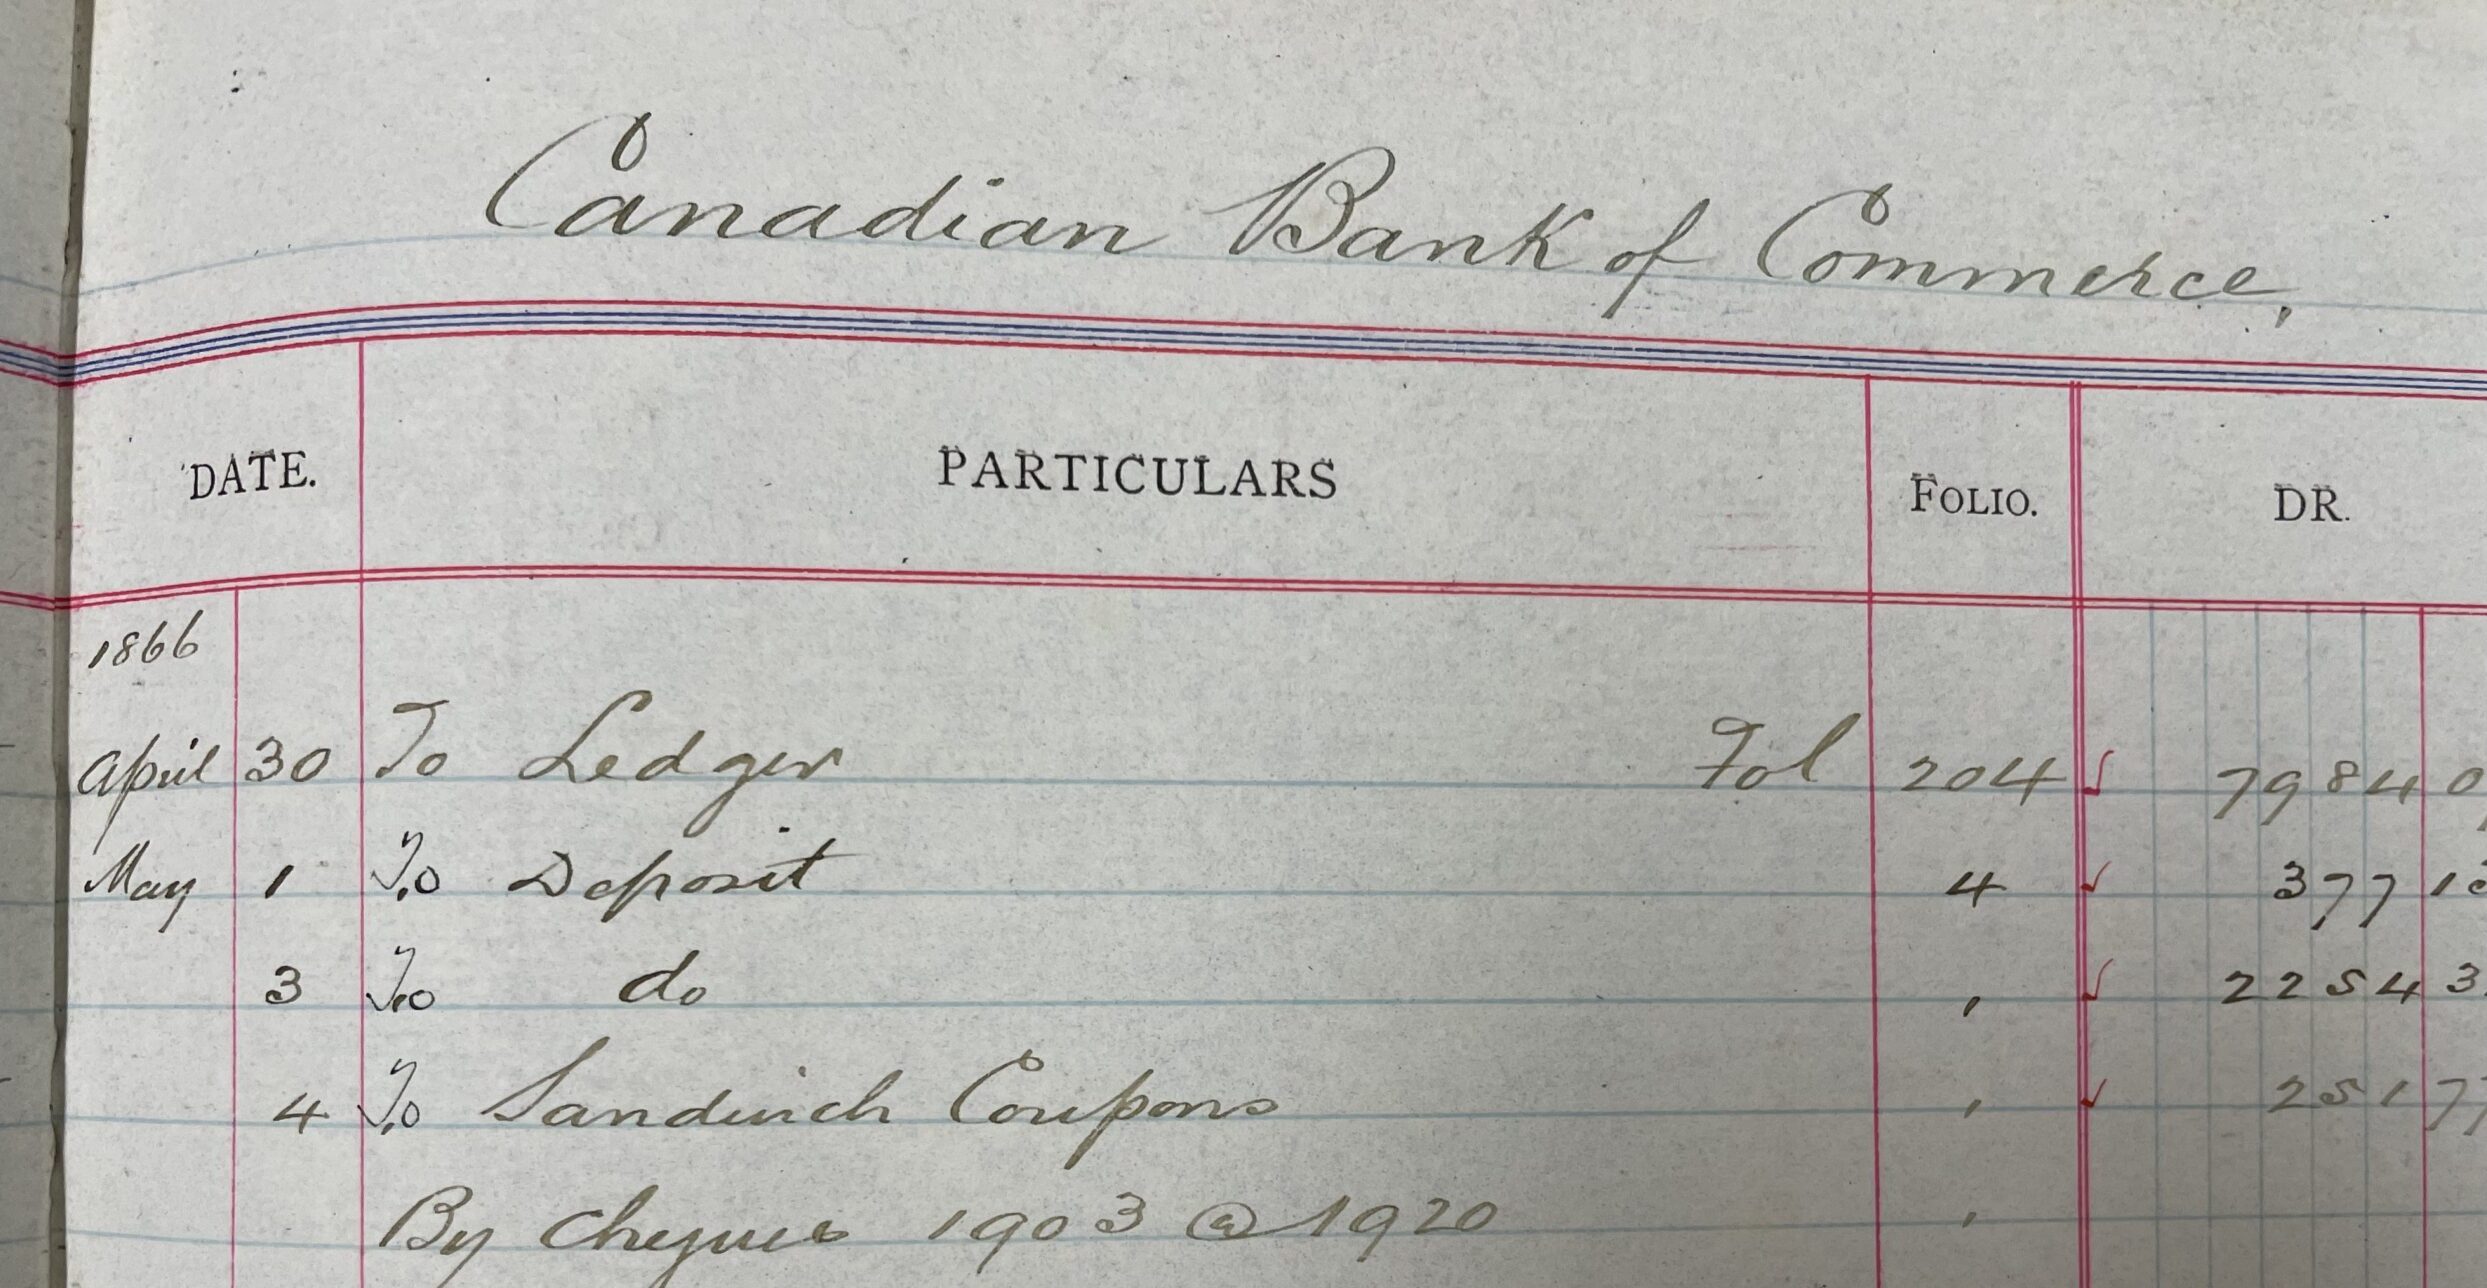 Canadian Bank of Commerce,
DATE. PARTICULARS FOLIO. DR.
1866
April 30 To Ledger Fol 204 7984 0
May 1 To Deposit 4 377 13
3 To do " 2254 3
4 To Sandwich Coupons " 251 77
By Cheques 1903 @ 1920 "